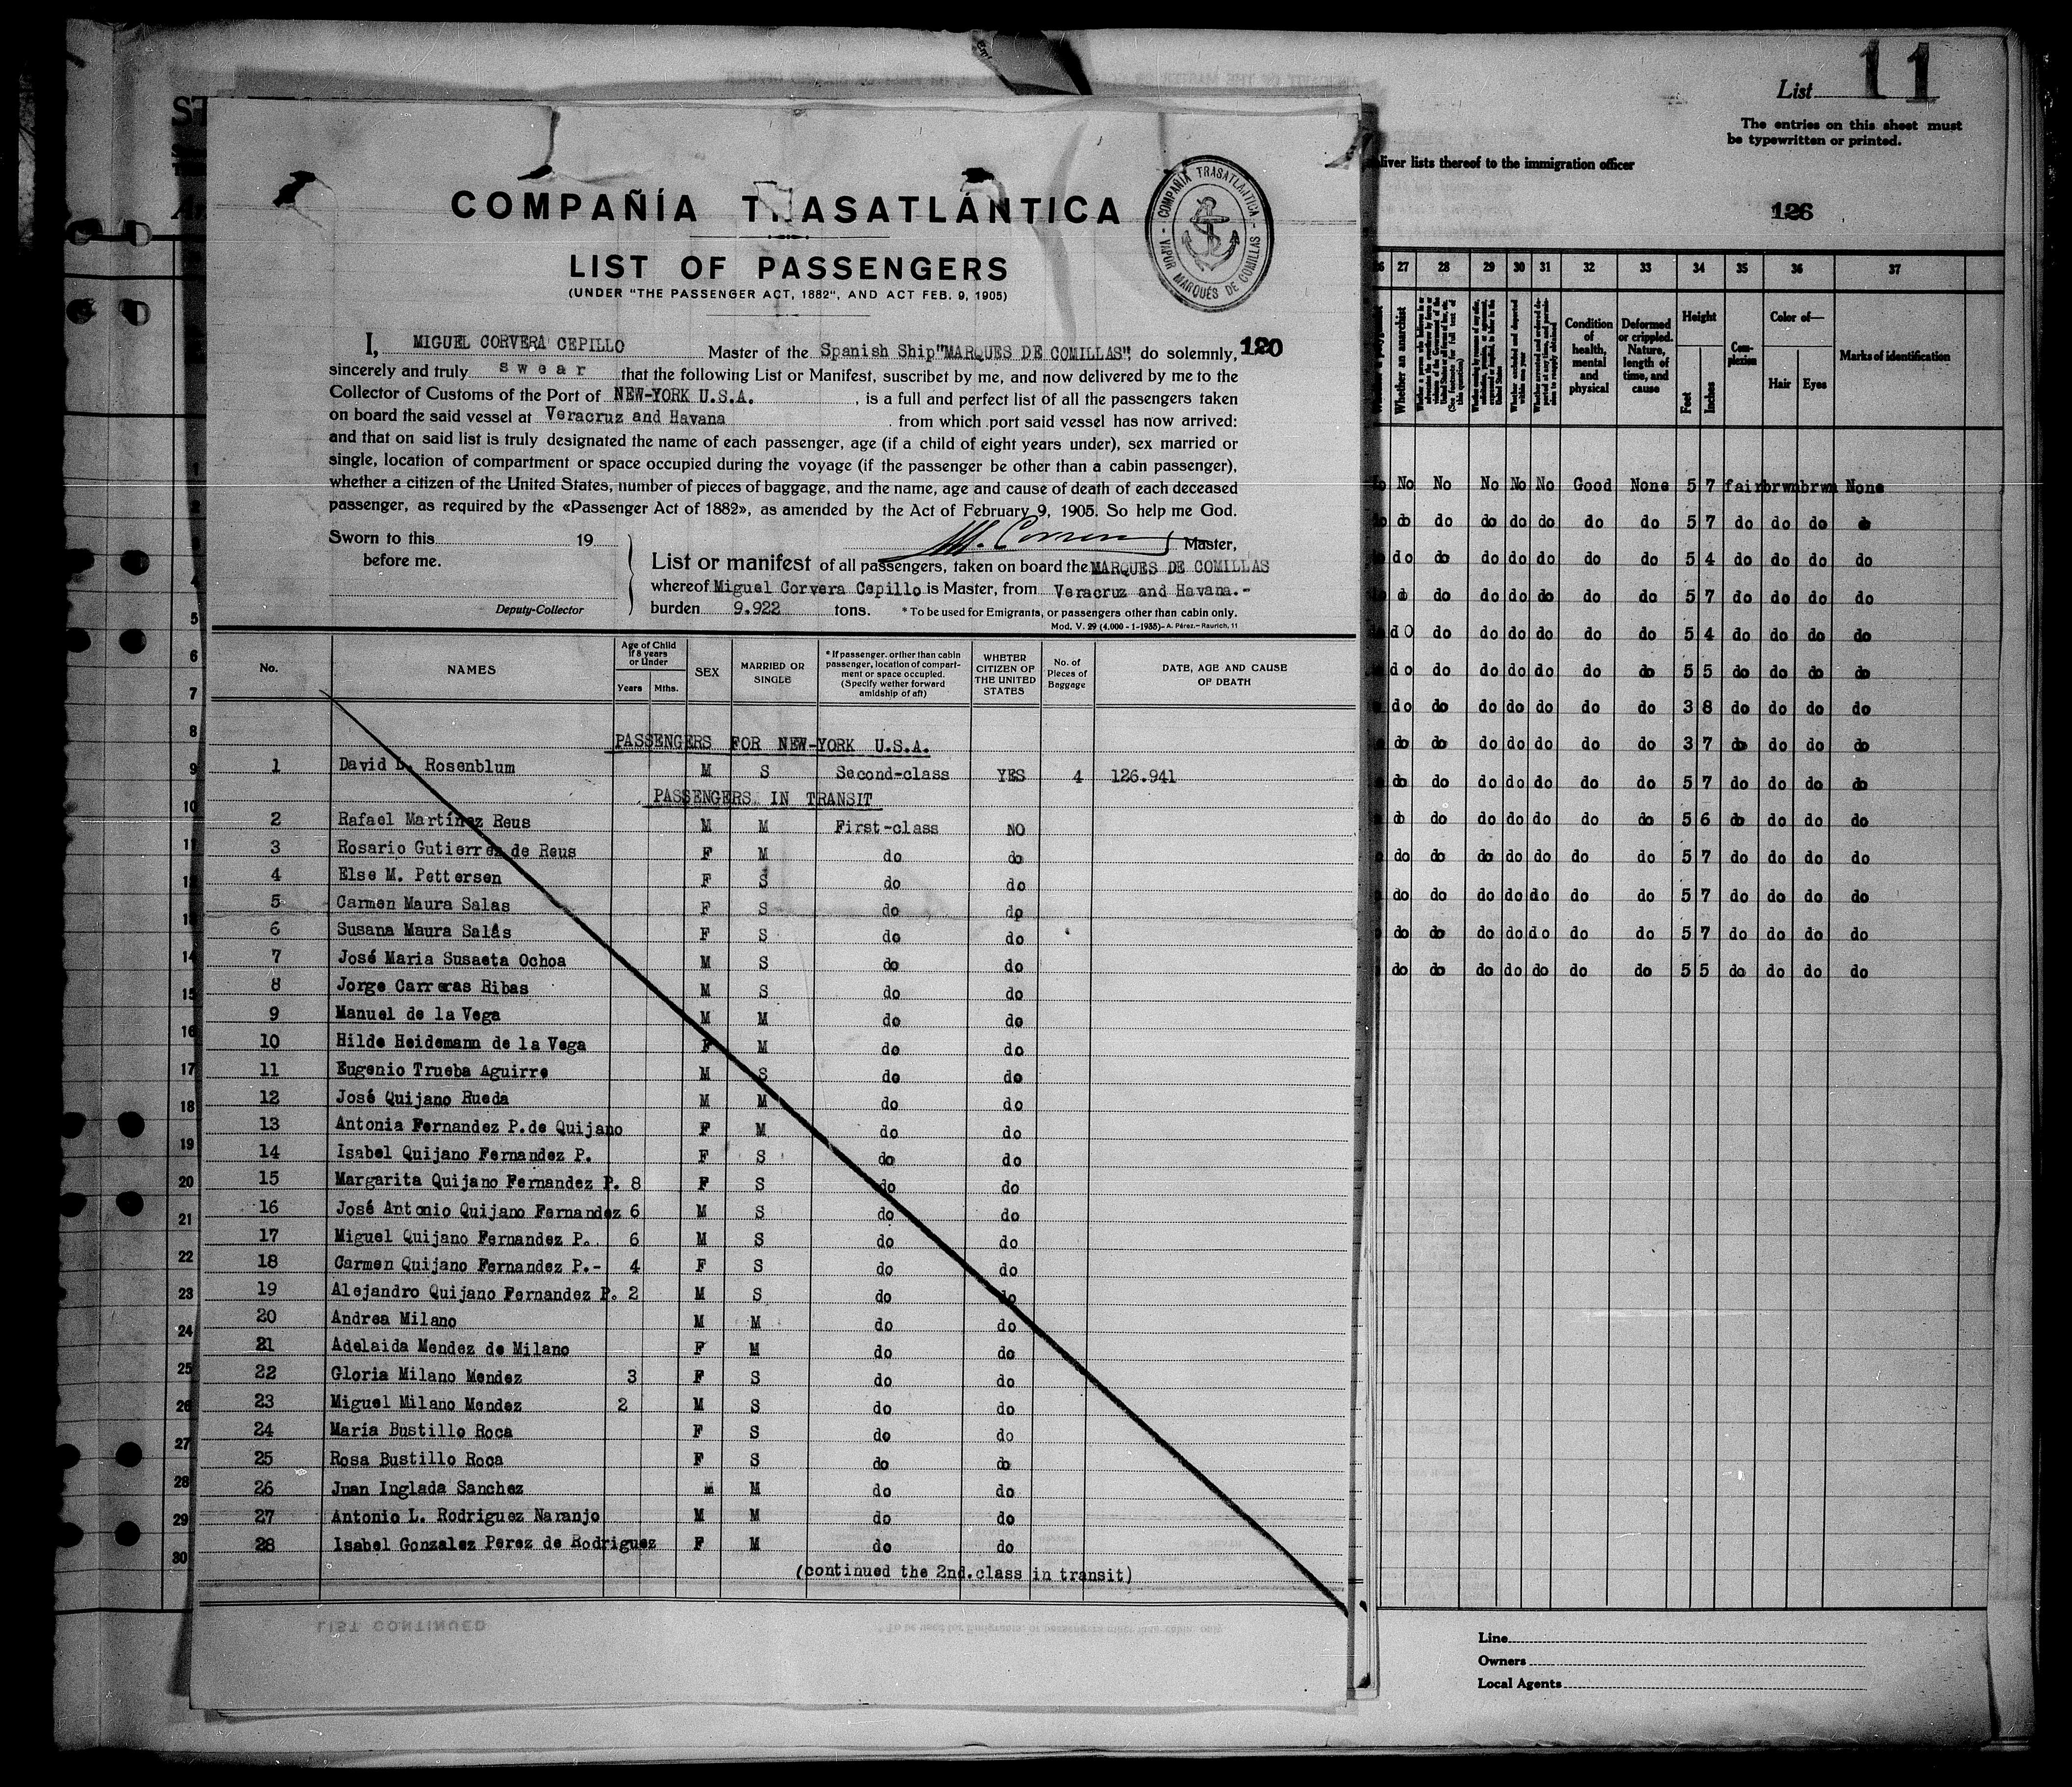 COMPAÑÍA TRASATLÁNTICA
LIST OF PASSENGERS
(UNDER "THE PASSENGER ACT, 1882", AND ACT FEB. 9, 1905)
COMPAÑÍA TRASATLANTICA - VAPOR MARQUÉS DE COMILLAS -
I, MIGUEL CORVERA CEPILLO Master of the Spanish Ship"MARQUES DE COMILLAS", do solemnly, 120
sincerely and truly swear that the following List or Manifest, suscribet by me, and now delivered by me to the
Collector of Customs of the Port of NEW-YORK U.S.A. , is a full and perfect list of all the passengers taken
on board the said vessel at Veracruz and Havana . from which port said vessel has now arrived:
and that on said list is truly designated the name of each passenger, age (if a child of eight years under), sex married or
single, location of compartment or space occupied during the voyage (if the passenger be other than a cabin passenger),
whether a citizen of the United States, number of pieces of baggage, and the name, age and cause of death of each deceased
passenger, as required by the «Passenger Act of 1882», as amended by the Act of February 9, 1905. So help me God.
Sworn to this 19
before me.
Deputy-Collector
Master,
List or manifest of all passengers, taken on board the MARQUES DE COMILLAS
whereof Miguel Corvera Cepillo is Master, from Veracruz and Havana.-
burden 9.922 tons. * To be used for Emigrants, or passengers other than cabin only.
Mod. V. 29 (4.000 - 1-1935)- A. Pérez.- Raurich, 11
No. NAMES Age of Child if 8 years or Under Years Mths. SEX MARRIED OR SINGLE * If passenger. orther than cabin passenger, location of compartment or space occupied. (Specify wether forward amidship of aft) WHETER CITIZEN OF THE UNITED STATES No. of Pieces of Baggage DATE, AGE AND CAUSE OF DEATH
PASSENGERS FOR NEW-YORK U.S.A.
1 David L. Rosenblum M S Second-class YES 4 126.941
PASSENGERS IN TRANSIT
2 Rafael Martínez Reus M M First-class NO
3 Rosario Gutierrez de Reus F M do do
4 Else M. Pettersen F S do do
5 Carmen Maura Salas F S do do
6 Susana Maura Salas F S do do
7 José Maria Susaeta Ochoa M S do do
8 Jorge Carreras Ribas M S do do
9 Manuel de la Vega M M do do
10 Hilde Heidemann de la Vega F M do do
11 Eugenio Trueba Aguirre M S do do
12 José Quijano Rueda M M do do
13 Antonia Fernandez P.de Quijano F M do do
14 Isabel Quijano Fernandez P. F S do do
15 Margarita Quijano Fernandez P. 8 F S do do
16 José Antonio Quijano Fernandez 6 M S do do
17 Miguel Quijano Fernandez P. 6 M S do do
18 Carmen Quijano Fernandez P.- 4 F S do do
19 Alejandro Quijano Fernandez P. 2 M S do do
20 Andrea Milano M M do do
21 Adelaida Mendez de Milano F M do do
22 Gloria Milano Mendez 3 F S do do
23 Miguel Milano Mendez 2 M S do do
24 Maria Bustillo Roca F S do do
25 Rosa Bustillo Roca F S do do
26 Juan Inglada Sanchez M M do do
27 Antonio L. Rodriguez Naranjo M M do do
28 Isabel Gonzalez Perez de Rodriguez F M do do
(continued the 2nd.class in transit)
LIST CONTINUED
List 11
The entries on this sheet must
be typewritten or printed.
liver lists thereof to the immigration officer
126
27 28 29 30 31 32 33 34 35 36 37
Whether an anarchist Condition of health, mental and physical Deformed or crippled. Nature, length of time, and cause Height Feet Inches Complexion Color of— Hair Eyes Marks of identification
No No No No No Good None 5 7 fair brwn brwn None
do do do do do do do 5 7 do do do do
do do do do do do do 5 4 do do do do
do do do do do do do 5 7 do do do do
do do do do do do do 5 4 do do do do
do do do do do do do 5 5 do do do do
do do do do do do do 3 8 do do do do
do do do do do do do 3 7 do do do do
do do do do do do do 5 7 do do do do
do do do do do do do 5 6 do do do do
do do do do do do do 5 7 do do do do
do do do do do do do 5 7 do do do do
do do do do do do do 5 7 do do do do
do do do do do do do 5 5 do do do do
Line
Owners
Local Agents